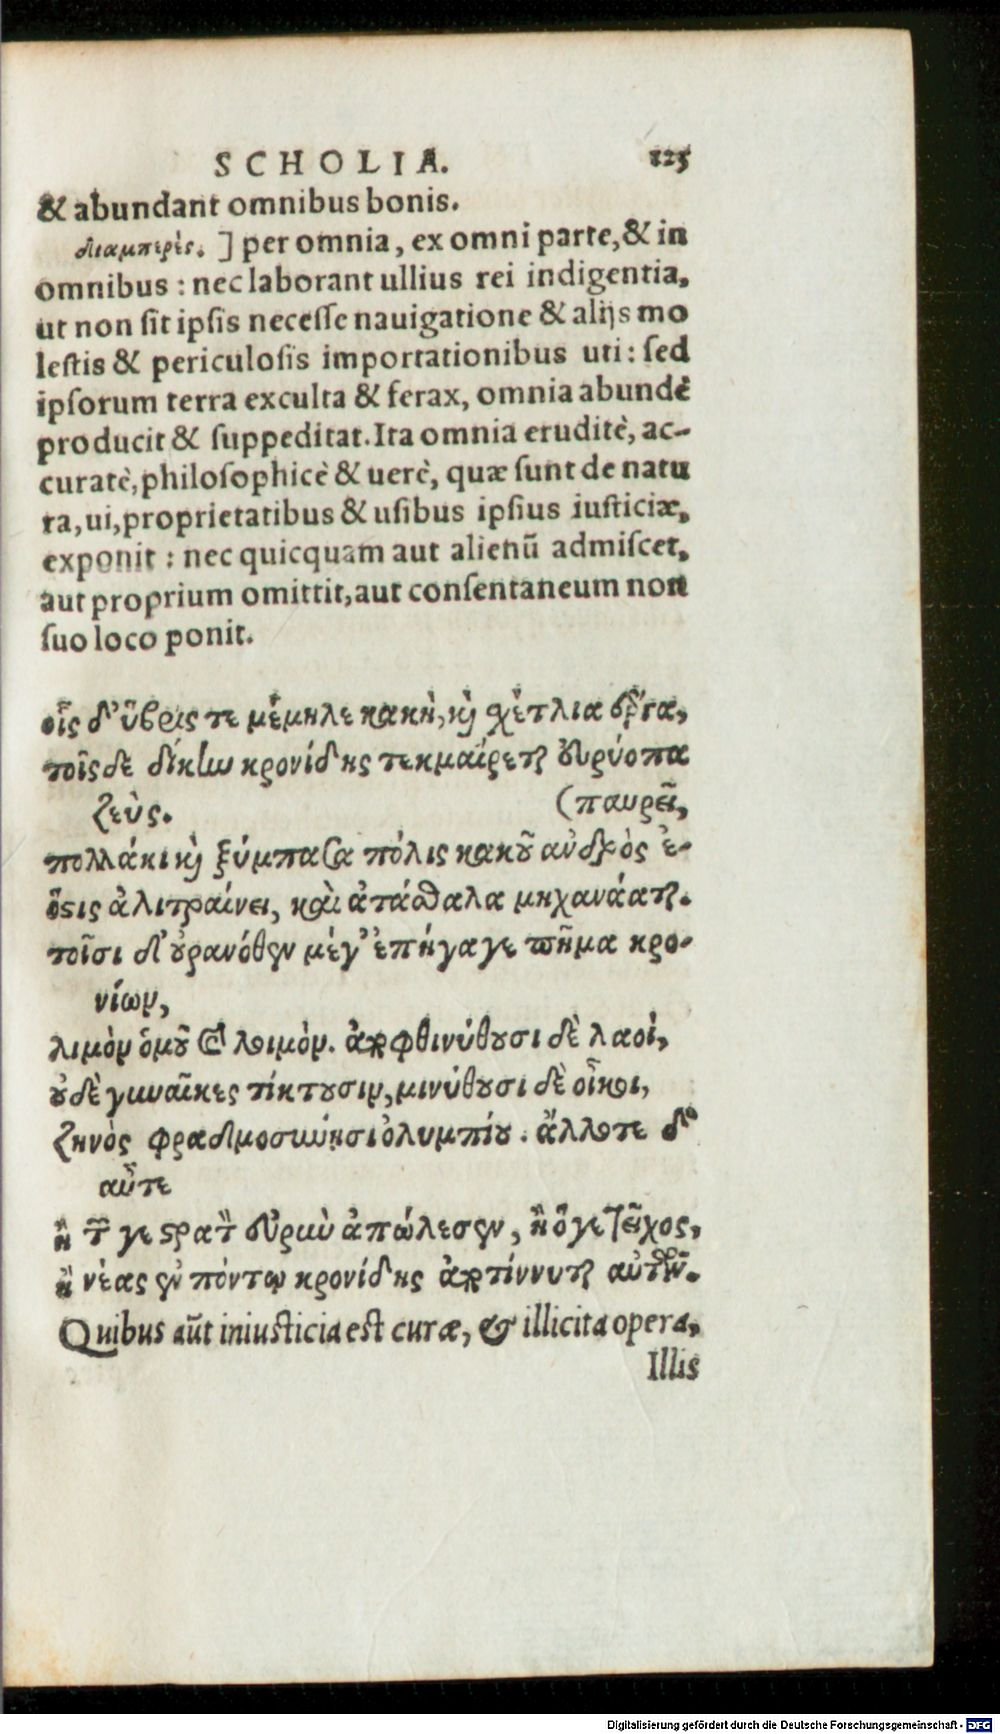 SCHOLIA. 125
& abundant omnibus bonis.
διαμπερές. ] per omnia, ex omni parte, & in
omnibus : nec laborant ullius rei indigentia,
ut non sit ipsis necesse nauigatione & alijs mo
lestis & periculosis importationibus uti : sed
ipsorum terra exculta & ferax, omnia abundè
producit & suppeditat. Ita omnia eruditè, ac-
curatè, philosophicè & uerè, quæ sunt de natu
ra, ui, proprietatibus & usibus ipsius iusticiæ,
exponit : nec quicquam aut alienũ admiscet,
aut proprium omittit, aut consentaneum non
suo loco ponit.
οἷς δ’ ὕβρις τε μέμηλε κακὴ, καὶ σχέτλια ἔργα,
τοῖς δὲ δίκην κρονίδης τεκμαίρεται εὐρύοπα
ζεὺς. (παυρεῖ,
πολλάκι καὶ ξύμπασα πόλις κακοῦ ἀνδρὸς ἐ-
ὅστις ἀλιτραίνει, καὶ ἀτάσθαλα μηχανάαται.
τοῖσι δ’ οὐρανόθεν μέγ’ ἐπήγαγε πῆμα κρο-
νίων,
λιμὸν ὁμοῦ καὶ λοιμὸν. ἀποφθινύθουσι δὲ λαοὶ,
οὐδὲ γυναῖκες τίκτουσιν, μινύθουσι δὲ οἶκοι,
ζηνὸς φραδμοσύνῃσι ὀλυμπίου. ἄλλοτε δ’
αὖτε
ἢ τῶν γε στρατὸν εὐρὺν ἀπώλεσεν, ἢ ὅ γε τεῖχος,
ἢ νέας ἐν πόντῳ κρονίδης ἀποτίννυται αὐτῶν.
Quibus aũt iniusticia est curæ, & illicita opera,
Illis
Digitalisierung gefördert durch die Deutsche Forschungsgemeinschaft - DFG